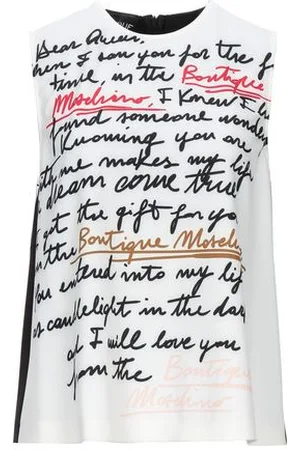 Dear Queen,
when I saw you for the f
time, in the Boutique
Moschino, I knew I h
found someone wonder
Knowing you are
with me makes my life
a dream come true
I got the gift for you
in the Boutique Moschi
You entered into my life
as candlelight in the dark
and I will love you
from the Boutique
Moschino